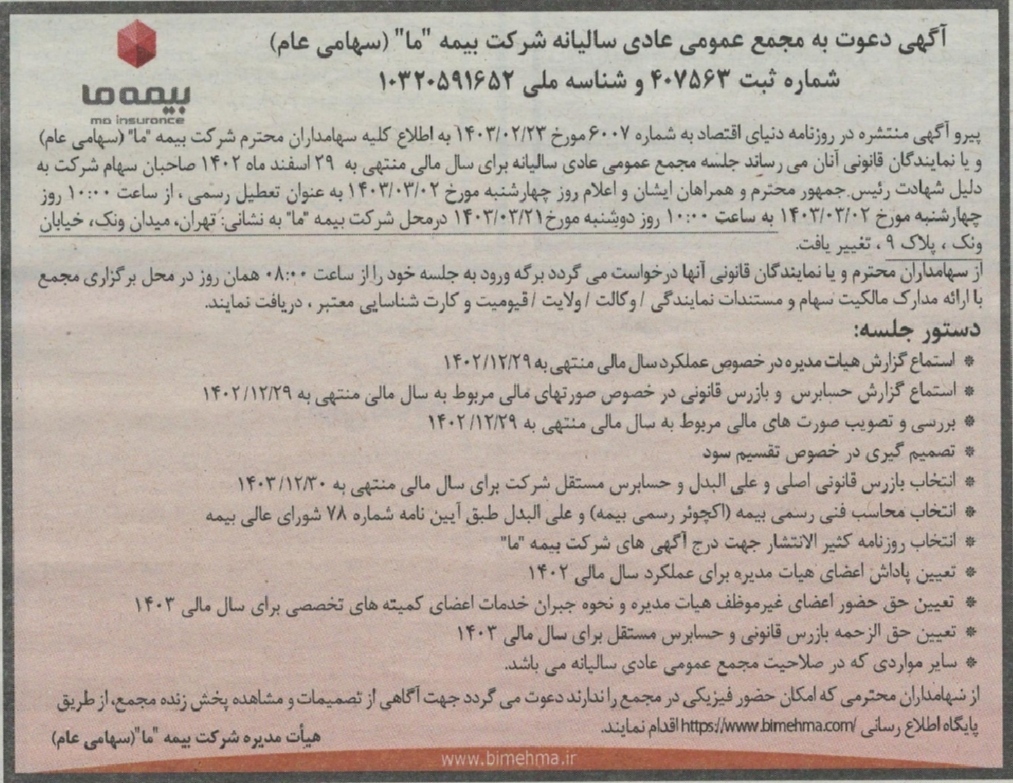 آگهی دعوت به مجمع عمومی عادی سالیانه شرکت بیمه "ما" (سهامی عام)
شماره ثبت ۴۰۷۵۶۳ و شناسه ملی ۱۰۳۲۰۵۹۱۶۵۲
بیمه ما
ma insurance
پیرو آگهی منتشره در روزنامه دنیای اقتصاد به شماره ۶۰۰۷ مورخ ۱۴۰۳/۰۲/۲۳ به اطلاع کلیه سهامداران محترم شرکت بیمه "ما" (سهامی عام)
و یا نمایندگان قانونی آنان می رساند جلسه مجمع عمومی عادی سالیانه برای سال مالی منتهی به ۲۹ اسفند ماه ۱۴۰۲ صاحبان سهام شرکت به
دلیل شهادت رئیس جمهور محترم و همراهان ایشان و اعلام روز چهارشنبه مورخ ۱۴۰۳/۰۳/۰۲ به عنوان تعطیل رسمی ، از ساعت ۱۰:۰۰ روز
چهارشنبه مورخ ۱۴۰۳/۰۳/۰۲ به ساعت ۱۰:۰۰ روز دوشنبه مورخ ۱۴۰۳/۰۳/۲۱ درمحل شرکت بیمه "ما" به نشانی: تهران، میدان ونک، خیابان
ونک ، پلاک ۹ ، تغییر یافت.
از سهامداران محترم و یا نمایندگان قانونی آنها درخواست می گردد برگه ورود به جلسه خود را از ساعت ۰۸:۰۰ همان روز در محل برگزاری مجمع
با ارائه مدارک مالکیت سهام و مستندات نمایندگی / وکالت / ولایت / قیومیت و کارت شناسایی معتبر ، دریافت نمایند.
دستور جلسه:
* استماع گزارش هیات مدیره در خصوص عملکرد سال مالی منتهی به ۱۴۰۲/۱۲/۲۹
* استماع گزارش حسابرس و بازرس قانونی در خصوص صورتهای مالی مربوط به سال مالی منتهی به ۱۴۰۲/۱۲/۲۹
* بررسی و تصویب صورت های مالی مربوط به سال مالی منتهی به ۱۴۰۲/۱۲/۲۹
* تصمیم گیری در خصوص تقسیم سود
* انتخاب بازرس قانونی اصلی و علی البدل و حسابرس مستقل شرکت برای سال مالی منتهی به ۱۴۰۳/۱۲/۳۰
* انتخاب محاسب فنی رسمی بیمه (اکچوئر رسمی بیمه) و علی البدل طبق آیین نامه شماره ۷۸ شورای عالی بیمه
* انتخاب روزنامه کثیر الانتشار جهت درج آگهی های شرکت بیمه "ما"
* تعیین پاداش اعضای هیات مدیره برای عملکرد سال مالی ۱۴۰۲
* تعیین حق حضور اعضای غیرموظف هیات مدیره و نحوه جبران خدمات اعضای کمیته های تخصصی برای سال مالی ۱۴۰۳
* تعیین حق الزحمه بازرس قانونی و حسابرس مستقل برای سال مالی ۱۴۰۳
* سایر مواردی که در صلاحیت مجمع عمومی عادی سالیانه می باشد.
از سهامداران محترمی که امکان حضور فیزیکی در مجمع را ندارند دعوت می گردد جهت آگاهی از تصمیمات و مشاهده پخش زنده مجمع، از طریق
پایگاه اطلاع رسانی https://www.bimehma.com/ اقدام نمایند.
هیأت مدیره شرکت بیمه "ما"(سهامی عام)
www.bimehma.ir